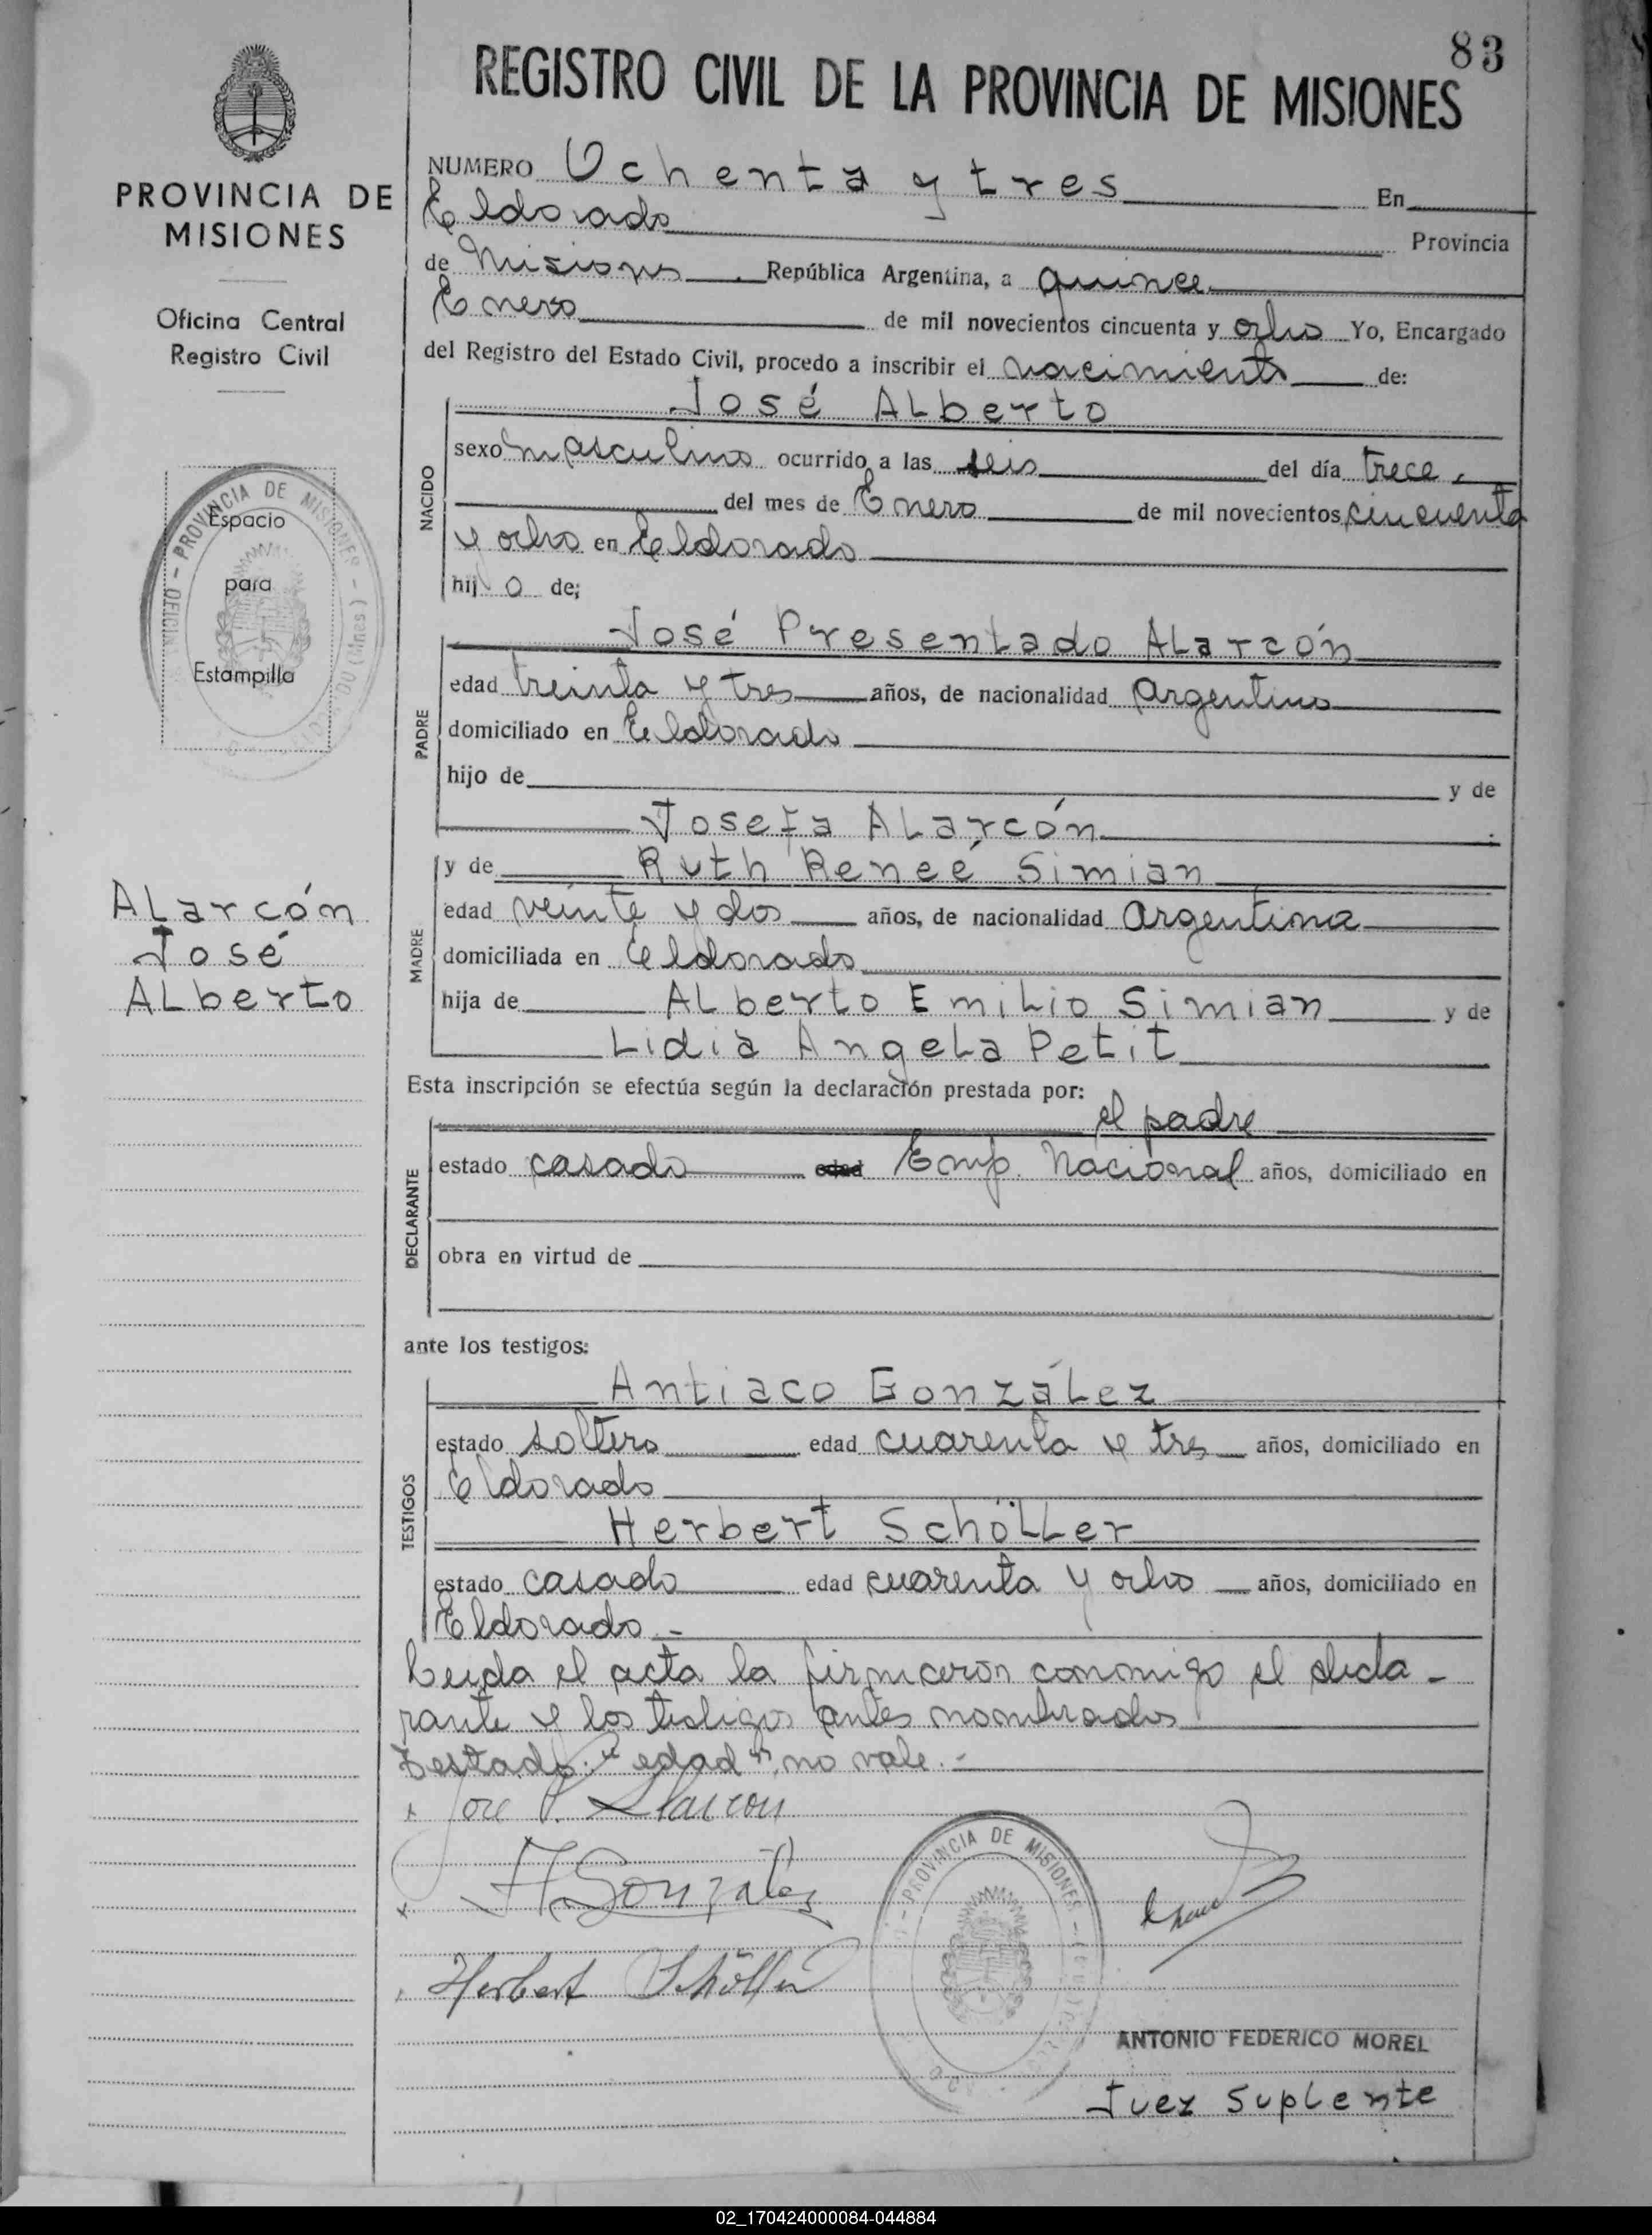 83
REGISTRO CIVIL DE LA PROVINCIA DE MISIONES
PROVINCIA DE
MISIONES
Oficina Central
Registro Civil
Espacio
para
Estampilla
Alarcón
José
Alberto
NUMERO Ochenta y tres En
Eldorado Provincia
de Misiones República Argentina, a quince
Enero de mil novecientos cincuenta y ocho Yo, Encargado
del Registro del Estado Civil, procedo a inscribir el nacimiento de:
NACIDO
José Alberto
sexo masculino ocurrido a las seis del día trece
del mes de Enero de mil novecientos cincuenta
y ocho en Eldorado
hijo de;
PADRE
José Presentado Alarcón
edad treinta y tres años, de nacionalidad Argentino
domiciliado en Eldorado
hijo de y de
Josefa Alarcón
MADRE
y de Ruth Reneé Simian
edad veinte y dos años, de nacionalidad Argentina
domiciliada en Eldorado
hija de Alberto Emilio Simian y de
Lidia Angela Petit
Esta inscripción se efectúa según la declaración prestada por:
DECLARANTE
el padre
estado casado edad Emp. Nacional años, domiciliado en
obra en virtud de
ante los testigos:
TESTIGOS
Antiaco González
estado soltero edad cuarenta y tres años, domiciliado en
Eldorado
Herbert Schöller
estado casado edad cuarenta y ocho años, domiciliado en
Eldorado.-
Leida el acta la firmaron conmigo el decla-
rante y los testigos antes nombrados
Testado: "edad" no vale.-
Jose P. Alarcon
A Gonzalez
Herbert Schöller
PROVINCIA DE MISIONES
ANTONIO FEDERICO MOREL
Juez Suplente
02_170424000084-044884